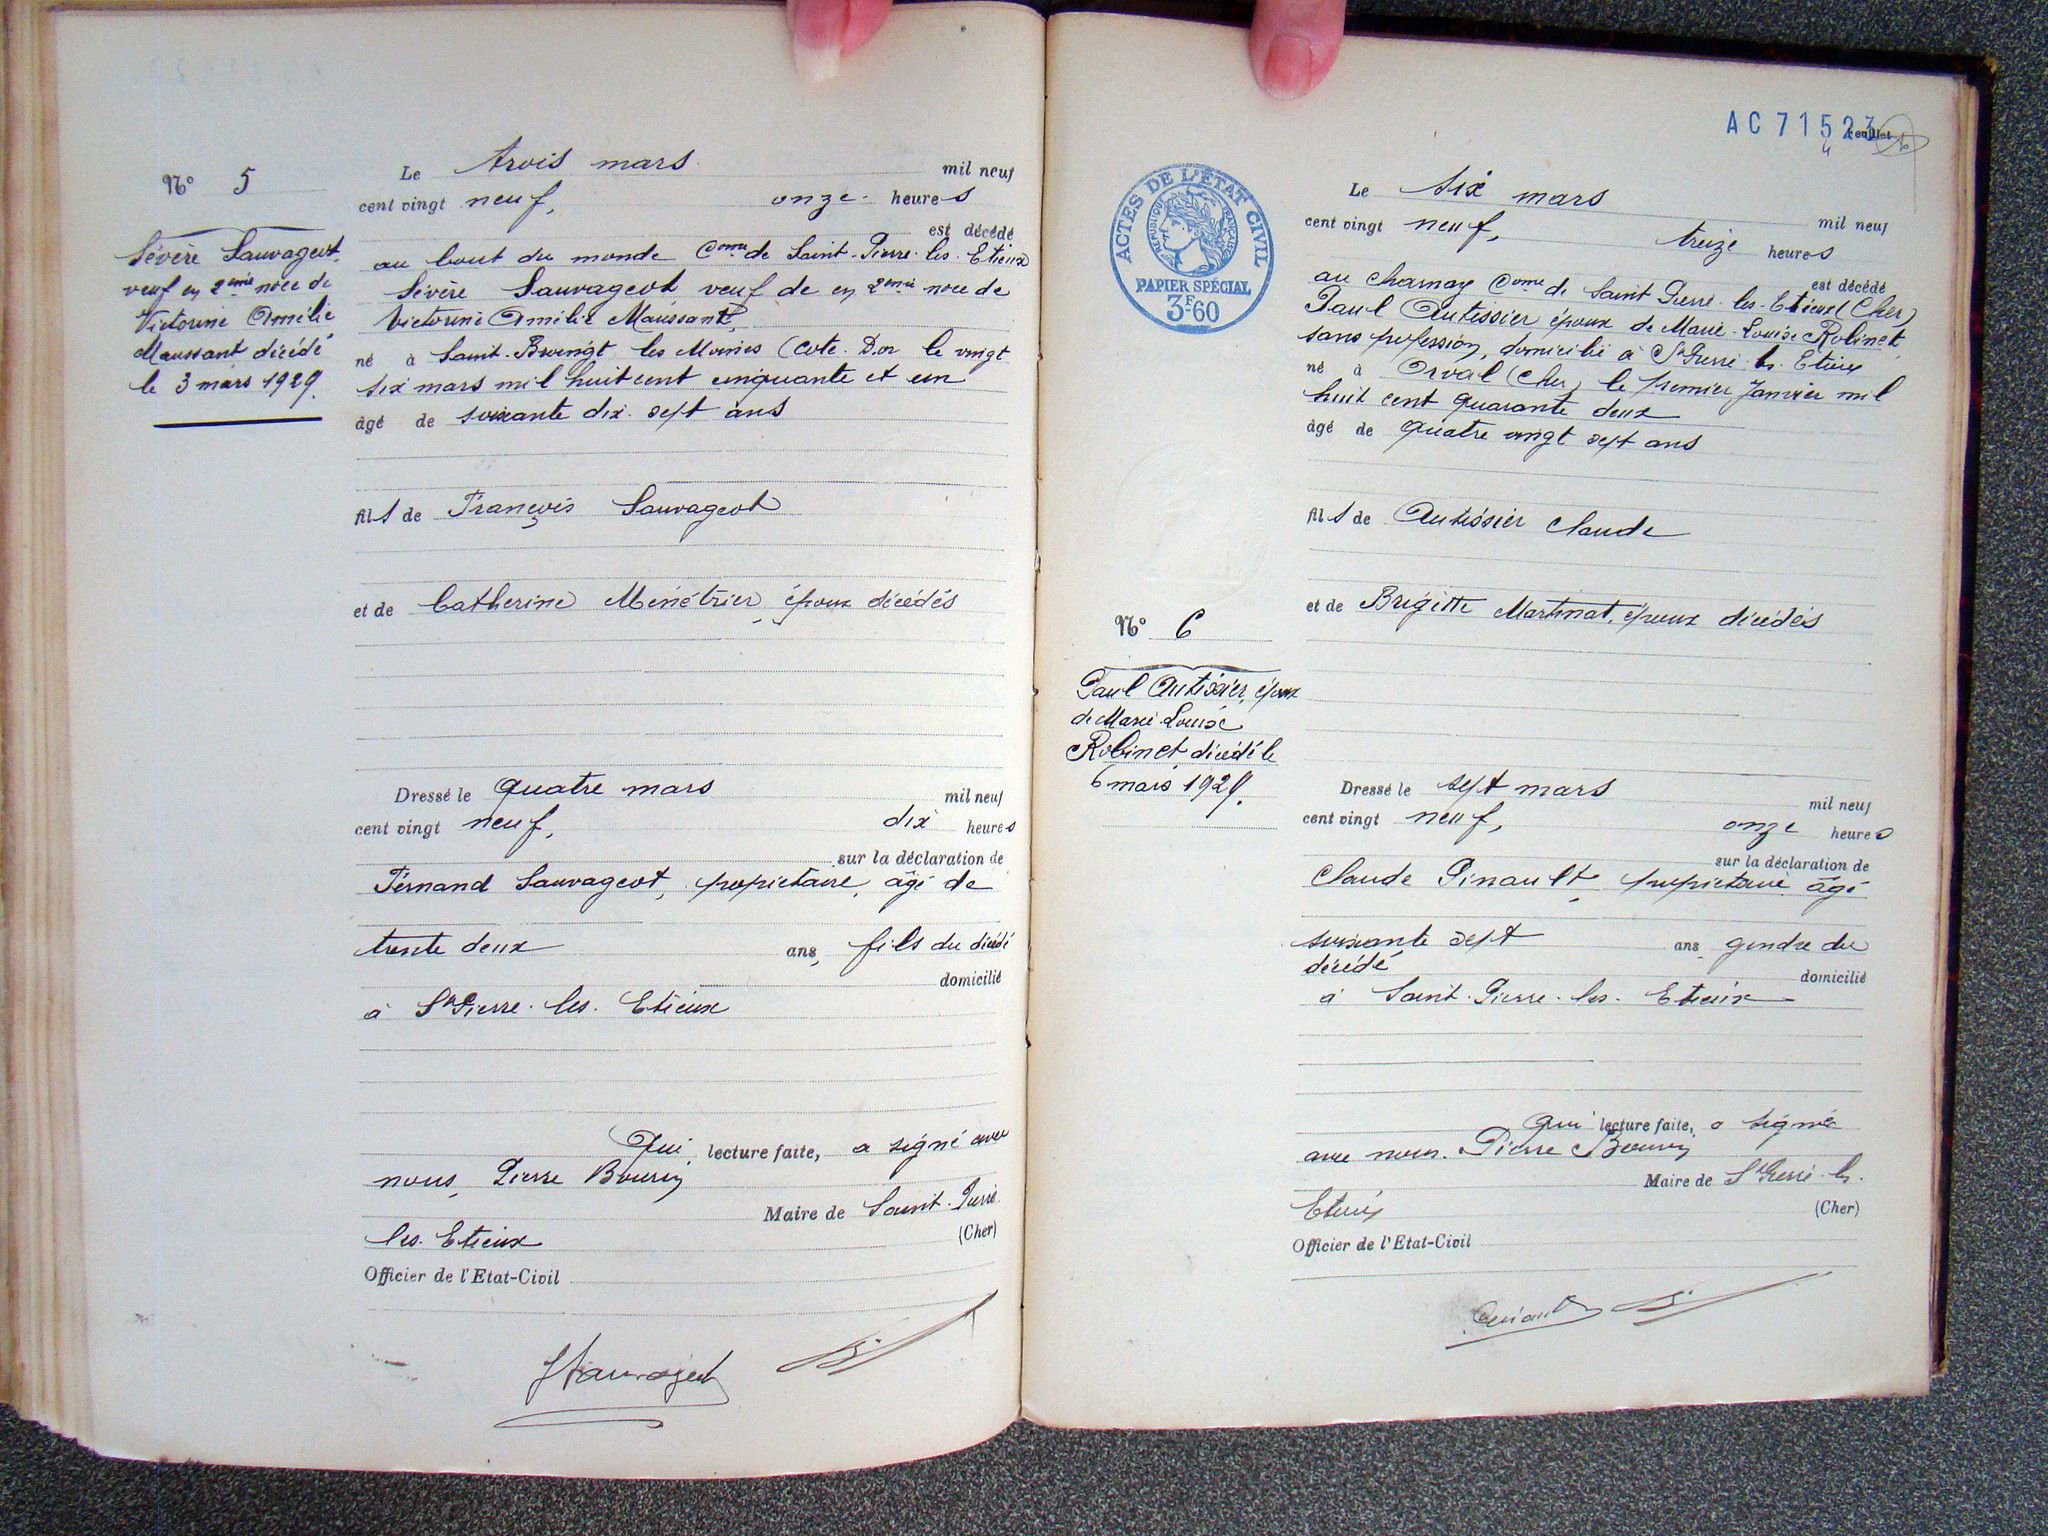 N° 5
Sévère Sauvageot
veuf en 2ème noce de
Victorine Amélie
Maussant décédé
le 3 mars 1929.
Le trois mars mil neuf
cent vingt neuf, onze heures
est décédé
au bout du monde Come de Saint-Pierre-les-Etieux
Sévère Sauvageot veuf de en 2ème noce de
Victorine Amélie Maussant,
né à Saint-Broingt les Moines (Cote-D'or le vingt
six mars mil huit cent cinquante et un
âgé de soixante dix-sept ans
fils de François Sauvageot
et de Catherine Ménétrier, époux décédés
Dressé le quatre mars mil neuf
cent vingt neuf, dix heures
sur la déclaration de
Fernand Sauvageot, propriétaire, âgé de
trente deux ans, fils du décédé
domicilié
à St Pierre-les-Etieux
Qui lecture faite, a signé avec
nous, Pierre Bourin
Maire de Saint-Pierre
les-Etieux (Cher)
Officier de l'Etat-Civil
FSauvageot
AC 71523 feuillet
4
ACTES DE L'ÉTAT CIVIL
REPUBLIQUE FRANÇAISE
PAPIER SPÉCIAL
3F60
N° 6
Paul Autissier, époux
de Marie-Louise
Robinet décédé le
6 mars 1929.
Le six mars mil neuf
cent vingt neuf, treize heures
est décédé
au charnay Come de Saint Pierre-les-Etieux (Cher)
Paul Autissier époux de Marie-Louise Robinet
sans profession, domicilié à St Pierre-les-Etieux
né à Orval (Cher) le premier Janvier mil
huit cent quarante deux
âgé de quatre vingt sept ans
fils de Autissier Claude
et de Brigitte Martinat, époux décédés
Dressé le sept mars mil neuf
cent vingt neuf, onze heures
sur la déclaration de
Claude Pinault, propriétaire âgé
soixante sept ans, gendre du
décédé domicilié
à Saint-Pierre-les-Etieux
Qui lecture faite, a signé
avec nous. Pierre Bourin
Maire de St Pierre-les-
Etieux (Cher)
Officier de l'Etat-Civil